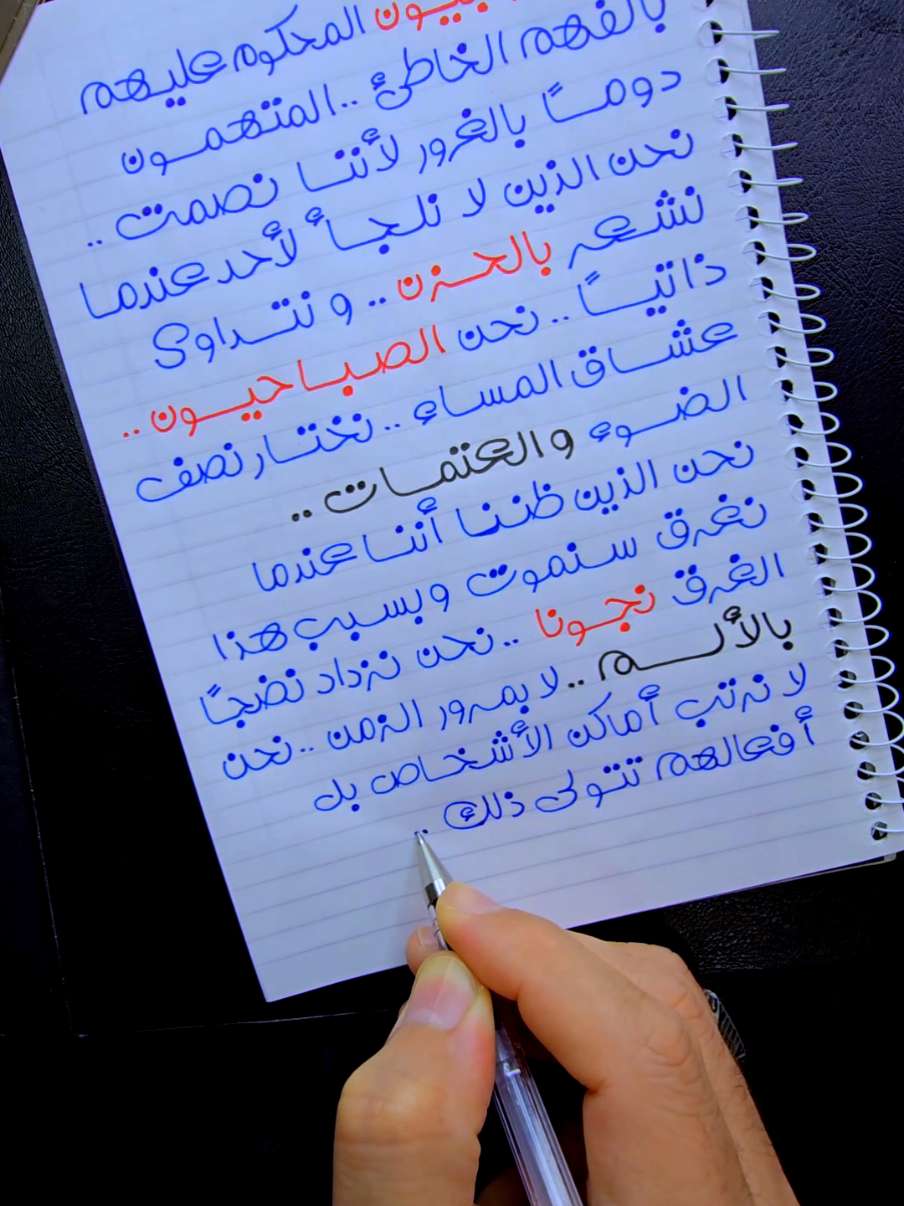 المحكوم عليهم
بالفهم الخاطئ ..المتهمون
دومـاً بالغرور لأننـا نصمت ..
نحن الذين لا نلجـأ لأحد عندما
نشعـر بالحـزن .. و نتـداوى
ذاتيـاً .. نحن الصبـاحيـون ..
عشـاق المساء .. نختـار نصف
الضـوء والعتمـات ..
نحن الذين ظننـا أننـا عندما
نغرق سنموت وبسبب هذا
الغرق نجـونا .. نحن نزداد نضجـاً
بالألـــم .. لا بمـرور الزمن .. نحن
لا نرتب أماكن الأشخـاص بل
أفعالهم تتـولى ذلك ..